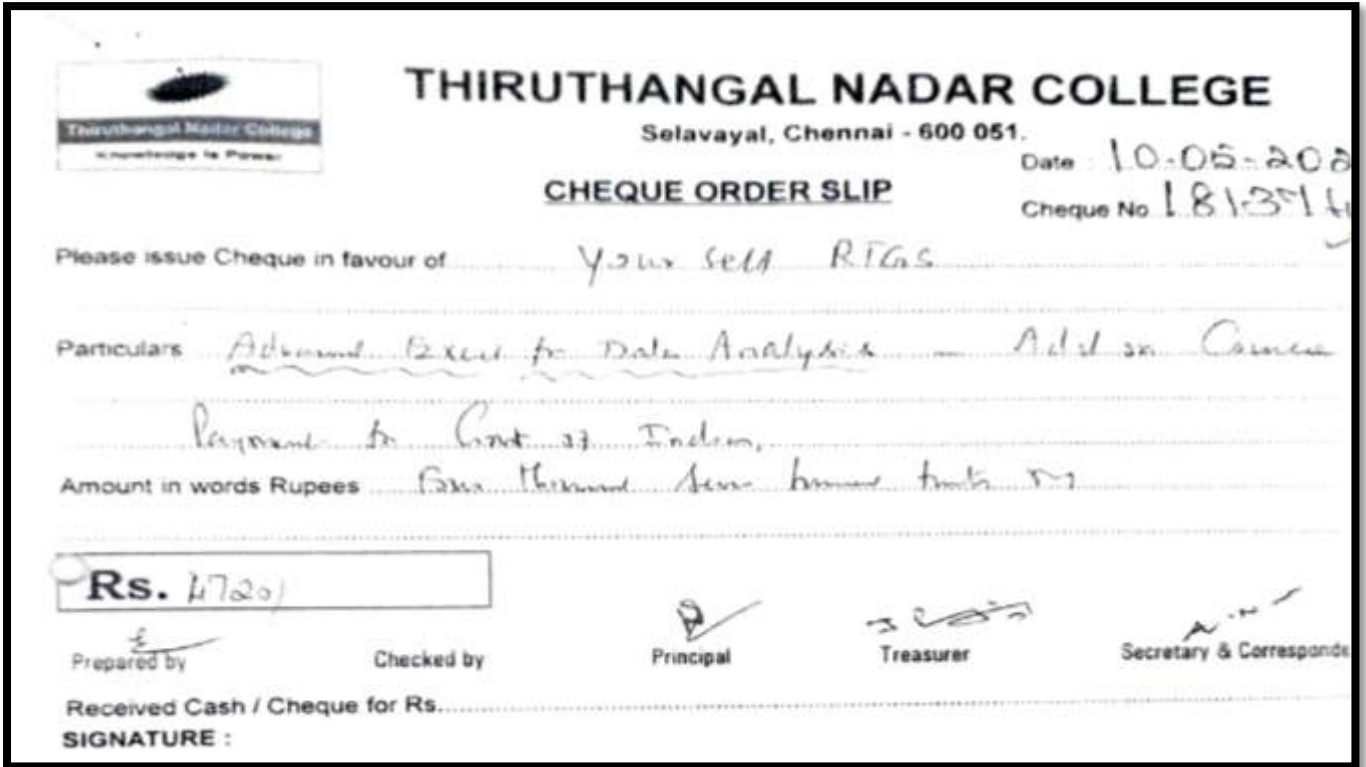 THIRUTHANGAL NADAR COLLEGE
Thiruthangal Nadar College
Knowledge is Power
Selavayal, Chennai - 600 051.
Date 10-05-202
CHEQUE ORDER SLIP
Cheque No 181371
Please issue Cheque in favour of Your self RTGS
Particulars Advanced Excel for Data Analysis - Add on Course
Payment to Govt of India,
Amount in words Rupees Four thousand seven hundred twenty only
Rs. 4720/
Prepared by Checked by Principal Treasurer Secretary & Corresponde
Received Cash / Cheque for Rs.
SIGNATURE :